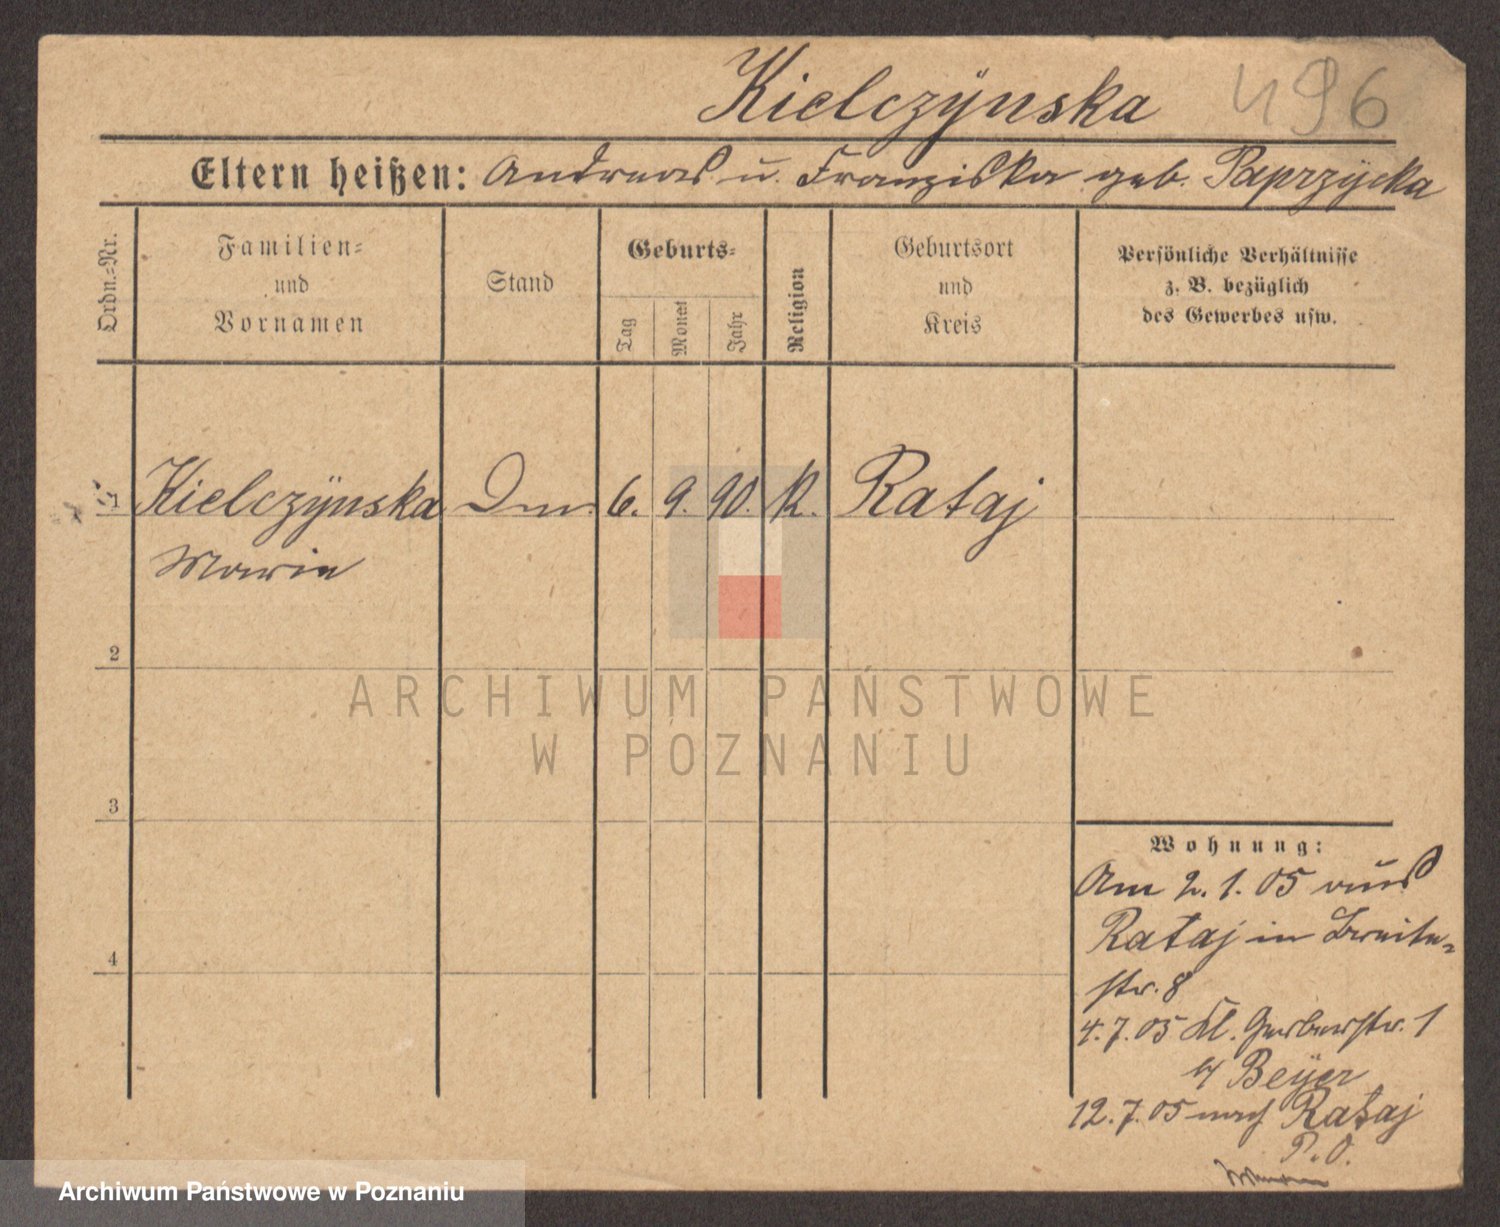 Kielczÿnska 496
Eltern heißen: Andreas u. Franziska geb. Paprzÿcka
Ordn.=Nr.
Familien=
und
Vornamen
Stand
Geburts=
Tag
Monat
Jahr
Religion
Geburtsort
und
Kreis
Persönliche Verhältnisse
z. B. bezüglich
des Gewerbes usw.
1 Kielczÿnska 6. 9. 90. K. Rataj
Marie
2
3
4
Wohnung:
Am 2. 1. 05 aus
Rataj in Breite=
str. 8
4. 7. 05 Kl. Gerberstr. 1
b/ Beÿer
12. 7. 05 nach Rataj
P. O.
ARCHIWUM PAŃSTWOWE
W POZNANIU
Archiwum Państwowe w Poznaniu